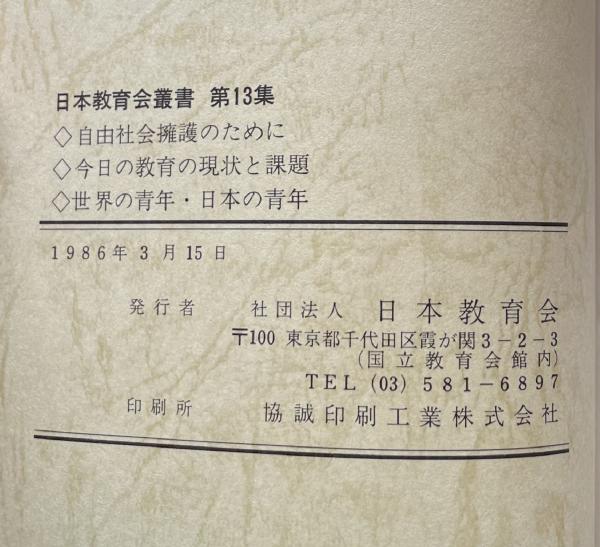 日本教育会叢書 第13集
◇自由社会擁護のために
◇今日の教育の現状と課題
◇世界の青年・日本の青年
1986年3月15日
発行者 社団法人 日本教育会
〒100 東京都千代田区霞が関3-2-3
(国立教育会館内)
TEL (03) 581-6897
印刷所 協誠印刷工業株式会社